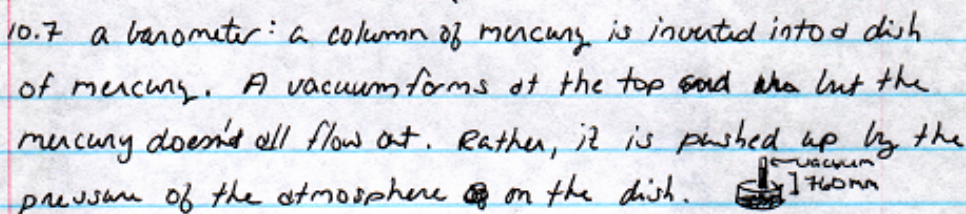 10.7 a barometer: a column of mercury is inverted into a dish
of mercury. A vacuum forms at the top but the
mercury doesn't all flow out. Rather, it is pushed up by the
pressure of the atmosphere on the dish.
vacuum
760mm